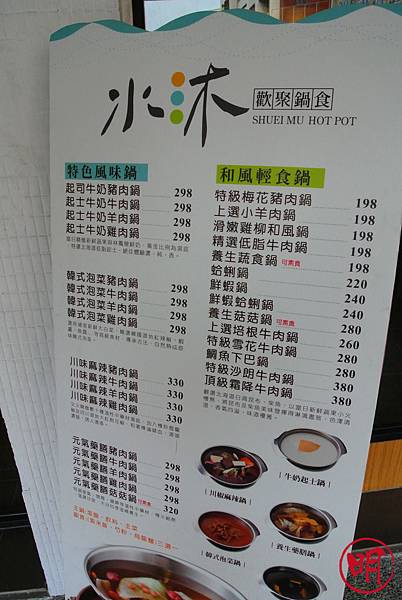 水沐
歡聚鍋食
SHUEI MU HOT POT
特色風味鍋
起司牛奶豬肉鍋 298
起士牛奶牛肉鍋 298
起士牛奶羊肉鍋 298
起士牛奶雞肉鍋 298
韓式泡菜豬肉鍋 298
韓式泡菜牛肉鍋 298
韓式泡菜羊肉鍋 298
韓式泡菜雞肉鍋 298
川味麻辣豬肉鍋 330
川味麻辣牛肉鍋 330
川味麻辣羊肉鍋 330
川味麻辣雞肉鍋 330
元氣藥膳豬肉鍋 298
元氣藥膳牛肉鍋 298
元氣藥膳羊肉鍋 298
元氣藥膳雞肉鍋 298
元氣藥膳菇菇鍋 可素食 320
和風輕食鍋
特級梅花豬肉鍋 198
上選小羊肉鍋 198
滑嫩雞柳和風鍋 198
精選低脂牛肉鍋 198
養生蔬食鍋 可素食 198
蛤蜊鍋 220
鮮蝦鍋 240
鮮蝦蛤蜊鍋 240
養生菇菇鍋 可素食 280
上選培根牛肉鍋 280
特級雪花牛肉鍋 260
鯛魚下巴鍋 280
特級沙朗牛肉鍋 380
頂級霜降牛肉鍋 380
牛奶起士鍋
川椒麻辣鍋
養生藥膳鍋
韓式泡菜鍋
明